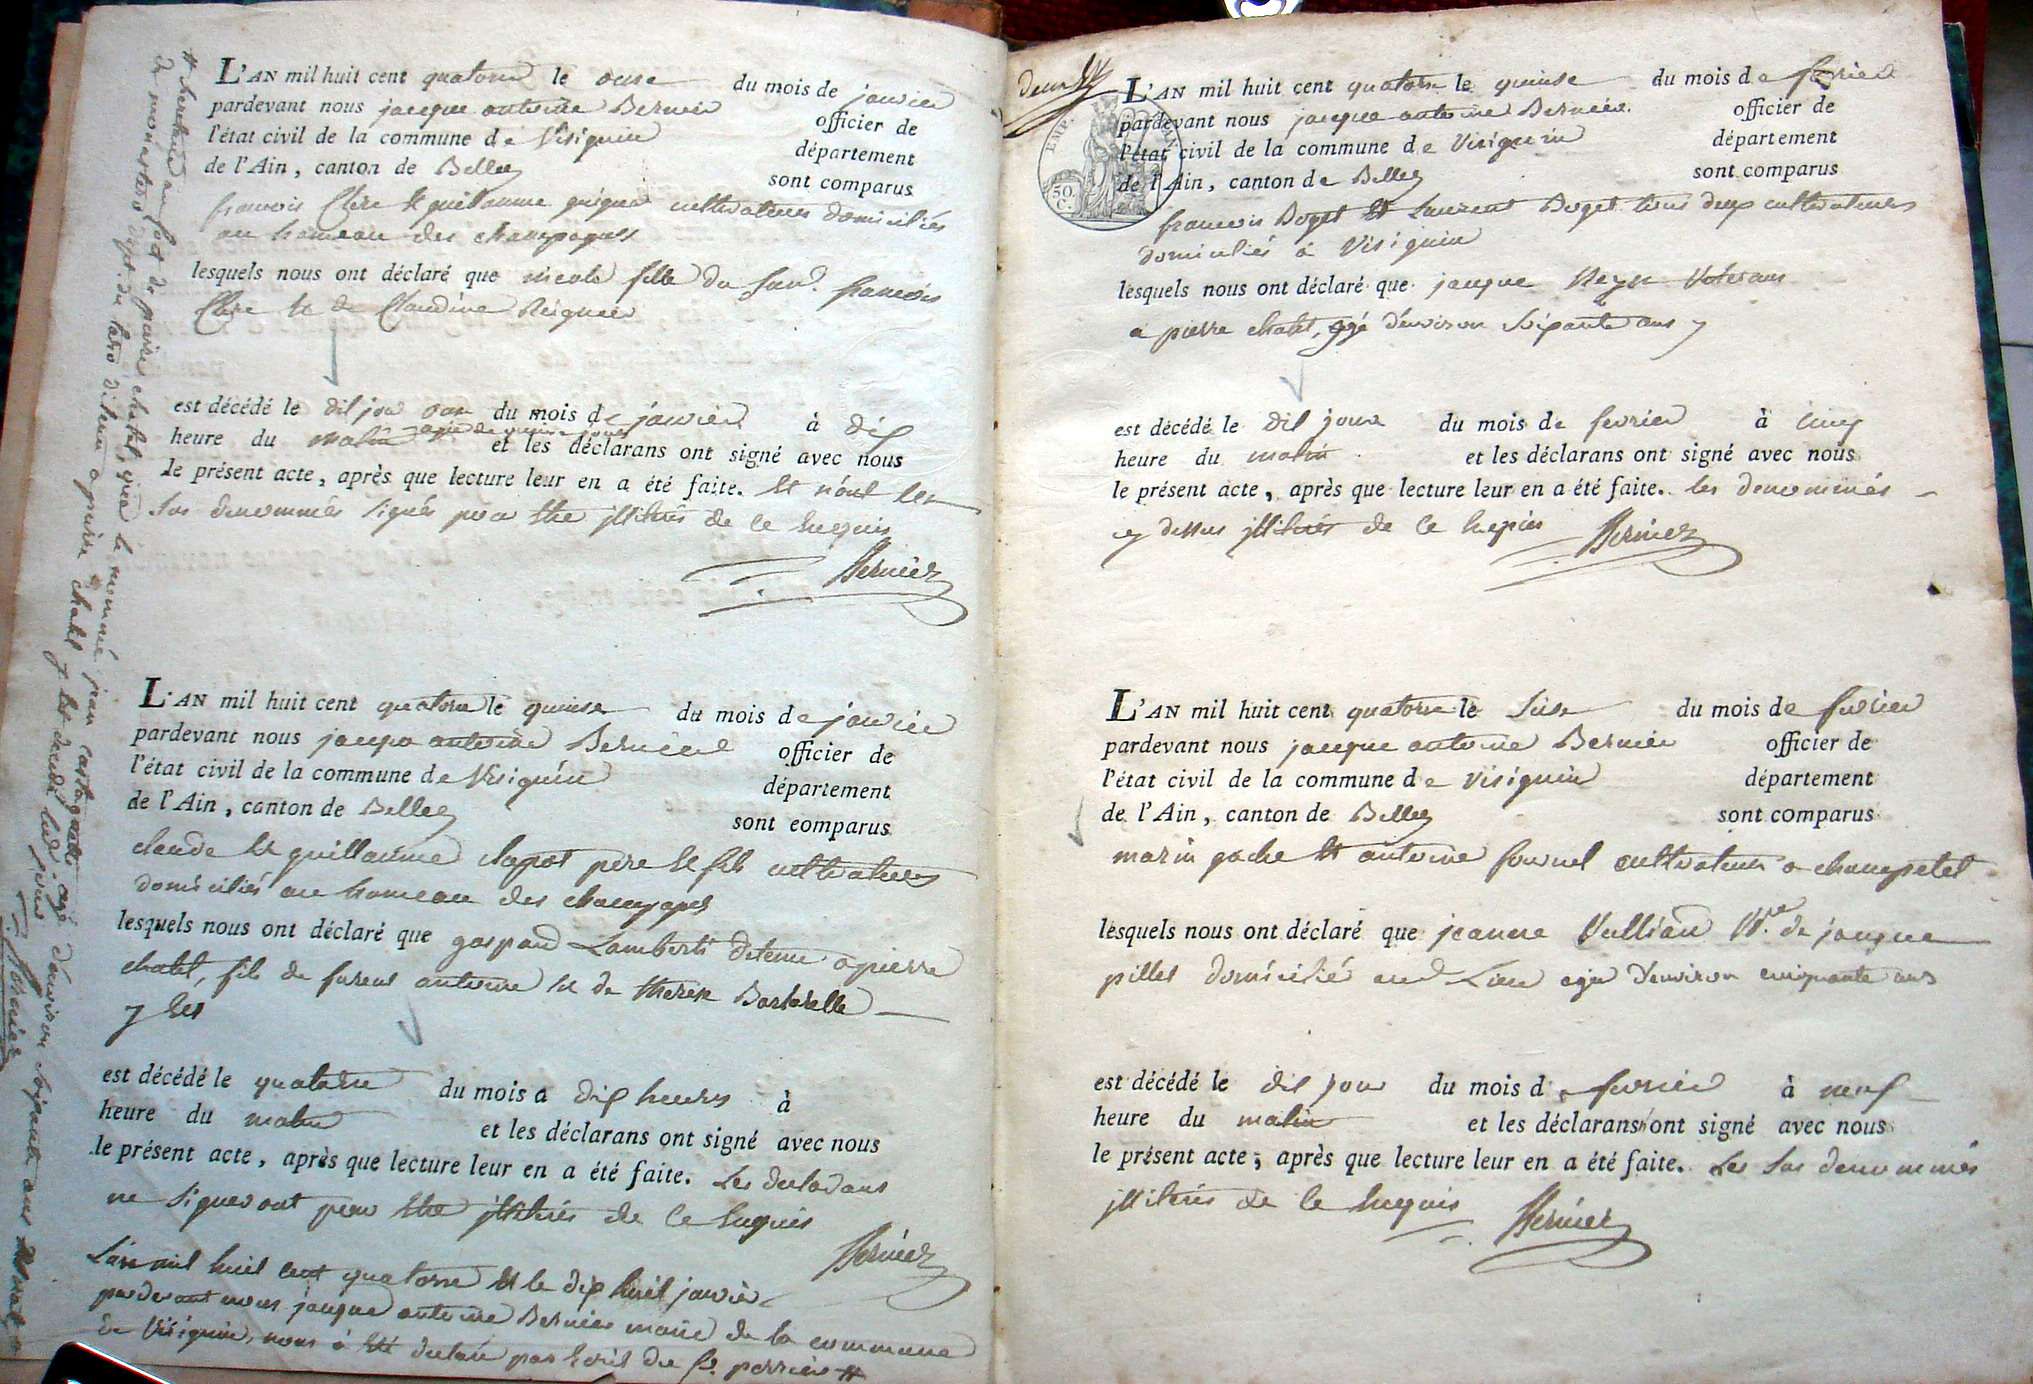 L'AN mil huit cent quatorze le onze du mois de janvier
pardevant nous jacque antoine Bernier officier de
l'état civil de la commune de Virignin département
de l'Ain, canton de Belley sont comparus
francois Clerc et guillaume cultivateurs domiciliés
au hameau des champagnes
lesquels nous ont déclaré que nicole fille du francois
Clerc et de Claudine
est décédé le dit jour onze du mois de janvier à dix
heure du matin et les déclarans ont signé avec nous
le présent acte, après que lecture leur en a été faite. et n'ont les
sus denommés signés pour etre illiterés de ce requis
Bernier
L'AN mil huit cent quatorze le quinze du mois de janvier
pardevant nous jacque antoine Bernier officier de
l'état civil de la commune de Virignin département
de l'Ain, canton de Belley sont comparus
claude et guillaume père et fils cultivateurs
domiciliés au hameau des champagnes
lesquels nous ont déclaré que gaspard Lamberti detenu a pierre
chatel, fils de antoine et de therese
y est
est décédé le quatorze du mois a dix heures à
heure du matin et les déclarans ont signé avec nous
le présent acte, après que lecture leur en a été faite. Les declarans
ne signeront pour etre illiterés de ce requis
Bernier
L'an mil huit cent quatorze et le dix huit janvier
pardevant nous jacque antoine Bernier maire de la commune
de Virignin, nous à eté declaré par du sr. #
# du fort de pierre chatel, que le nommé jean agé d'environ soixante ans
de dept. du detenu a pierre chatel y est decedé
Bernier
EMP. FRAN.
50.
C.
L'AN mil huit cent quatorze le quinze du mois de fevrier
pardevant nous jacque antoine Bernier officier de
l'état civil de la commune de Virignin département
de l'Ain, canton de Belley sont comparus
francois Boget et Laurent Boget tous deux cultivateurs
domiciliés à Virignin
lesquels nous ont déclaré que jacque Veteran
a pierre chatel, agé d'environ soixante ans
est décédé le dit jour du mois de fevrier à cinq
heure du matin et les déclarans ont signé avec nous
le présent acte, après que lecture leur en a été faite. les denommés
cy dessus illiterés de ce requis Bernier
L'AN mil huit cent quatorze le seize du mois de fevrier
pardevant nous jacque antoine Bernier officier de
l'état civil de la commune de Virignin département
de l'Ain, canton de Belley sont comparus
marin et antoine fournel cultivateurs a champetel
lesquels nous ont déclaré que jeanne Vullian Vve. de jacque
pillet domicilié aud. Lieu agée d'environ cinquante ans
est décédé le dit jour du mois de fevrier à neuf
heure du matin et les déclarans ont signé avec nous
le présent acte, après que lecture leur en a été faite. Les sus denommés
illiterés de ce requis Bernier